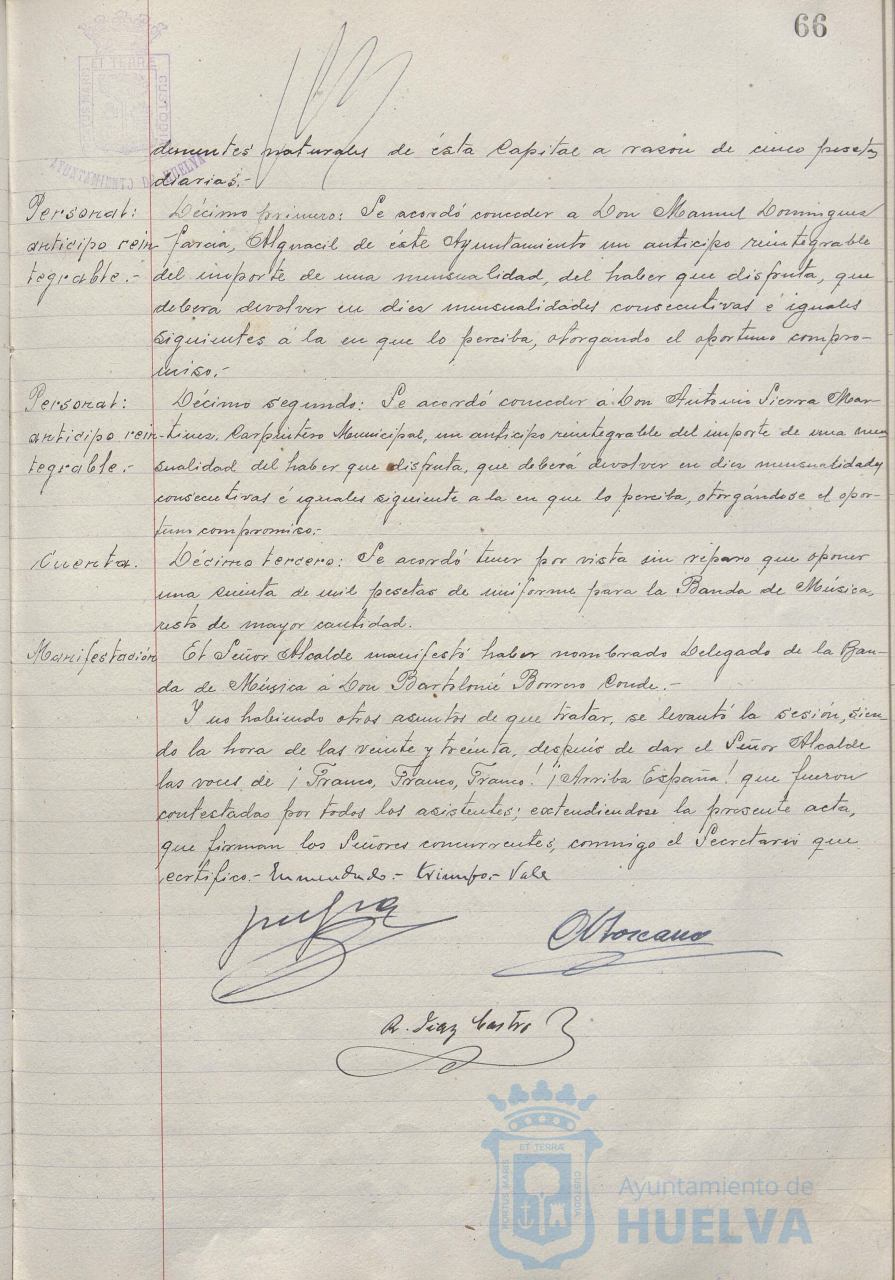 66
PORTUS MARIS ET TERRÆ CUSTODIA
AYUNTAMIENTO DE HUELVA
dementes naturales de ésta Capital a razón de cinco pesetas
diarias.-
Personal: Décimo primero: Se acordó conceder a Don Manuel Domínguez
anticipo rein- García, Alguacil de éste Ayuntamiento un anticipo reintegrable
tegrable.- del importe de una mensualidad, del haber que disfruta, que
deberá devolver en diez mensualidades consecutivas é iguales
siguientes á la en que lo perciba, otorgando el oportuno compro-
miso.-
Personal: Décimo segundo: Se acordó conceder á Don Antonio Sierra Mar-
anticipo rein- tínez, Carpintero Municipal, un anticipo reintegrable del importe de una men-
tegrable.- sualidad del haber que disfruta, que deberá devolver en diez mensualidades
consecutivas é iguales siguiente a la en que lo perciba, otorgándose el opor-
tuno compromiso.-
Cuenta. Décimo tercero: Se acordó tener por vista sin reparo que oponer
una cuenta de mil pesetas de uniforme para la Banda de Música,
resto de mayor cantidad.
Manifestación El Señor Alcalde manifestó haber nombrado Delegado de la Ban-
da de Música á Don Bartolomé Borrero Conde.-
Y no habiendo otros asuntos de que tratar, se levantó la sesión, sien-
do la hora de las veinte y treinta, después de dar el Señor Alcalde
las voces de ¡Franco, Franco, Franco! ¡Arriba España! que fueron
contestadas por todos los asistentes; extendiendose la presente acta,
que firman los Señores concurrentes, conmigo el Secretario que
certifico.- Enmendado.- triunfo.- Vale
R. Díaz Castro
PORTUS MARIS ET TERRÆ CUSTODIA
Ayuntamiento de
HUELVA